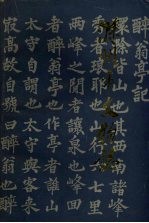 醉翁亭記
滁皆山也其西南諸峰
秀者琅耶也山行六七里
兩峰之間者讓泉也峰回
者醉翁亭也作亭者誰山
太守自謂也太守與客來
最高故自號曰醉翁也醉